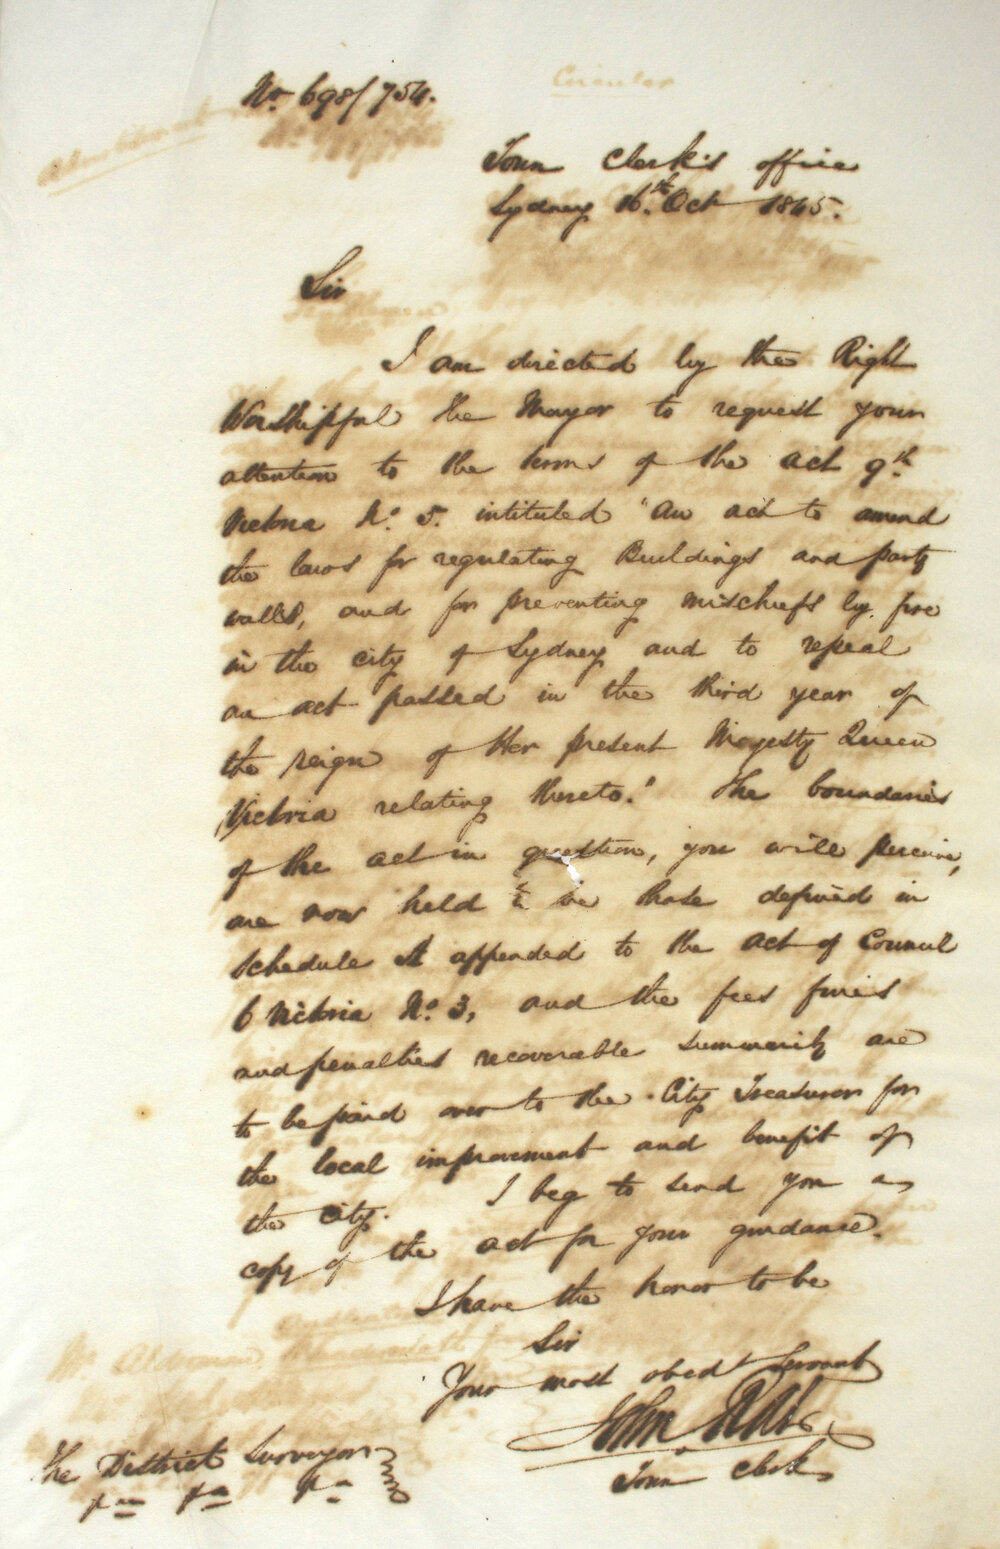 Circular
No. 698/754.
Town Clerk's office
Sydney 16th. Oct 1845.
Sir
I am directed by the Right
Worshipful the Mayor to request your
attention to the terms of the act 9th.
Victoria No. 5. intituled "An act to amend
the laws for regulating Buildings and party
walls, and for preventing mischiefs by fire
in the city of Sydney and to repeal
an act passed in the third year of
the reign of Her present Majesty Queen
Victoria relating thereto." The boundaries
of the act in question, you will perceive,
are now held to be those defined in
schedule A appended to the act of Council
6 Victoria No. 3, and the fees fines
and penalties recoverable summarily are
to be paid over to the City Treasurer for
the local improvement and benefit of
the city. I beg to send you a
copy of the act for your guidance.
I have the honor to be
Sir
Your most obedt Servant
John
Town Clerk
The District Surveyor